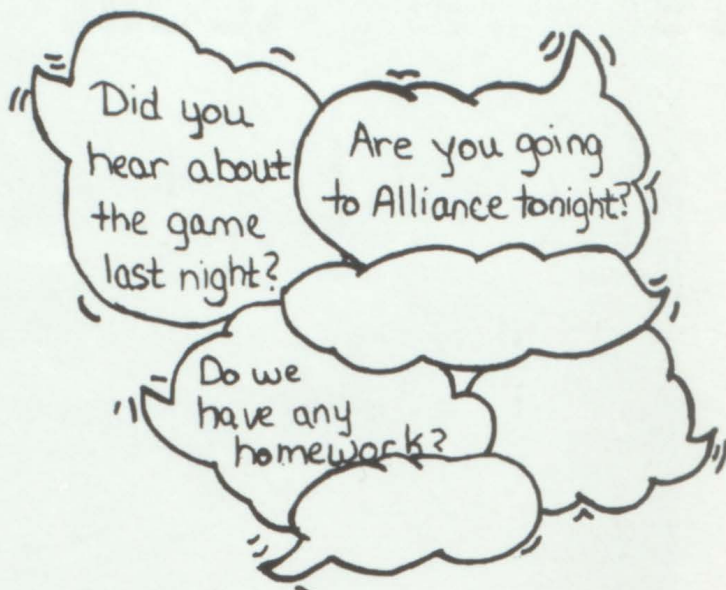 Did you
hear about
the game
last night?
Are you going
to Alliance tonight?
Do we
have any
homework?